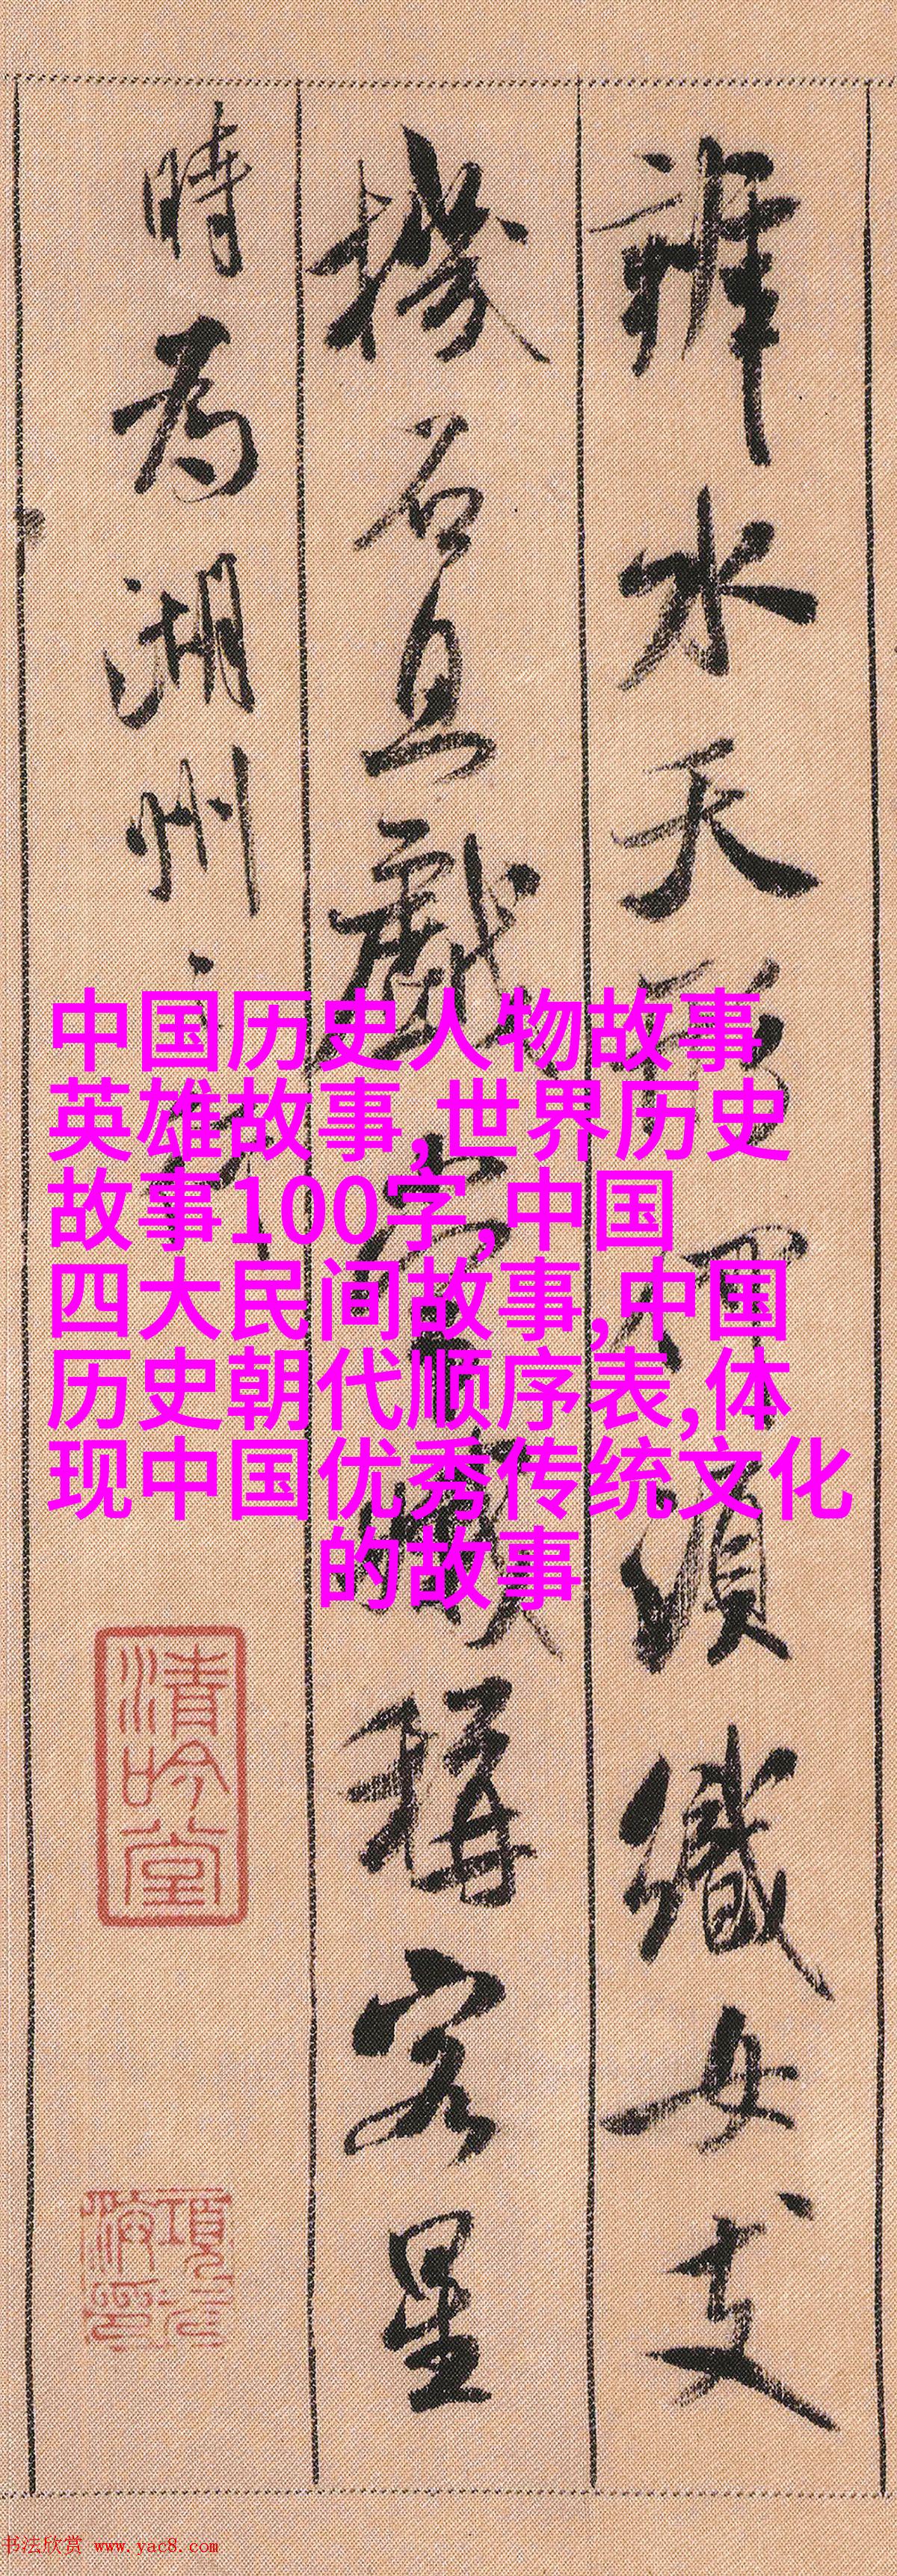 漼水天形得須織女支
機石且戲常娥稱客星
時為湖州之行
中国历史人物故事
英雄故事,世界历史
故事100字,中国
四大民间故事,中国
历史朝代顺序表,体
现中国优秀传统文化
的故事
清吟堂
书法欣赏 www.yac8.com